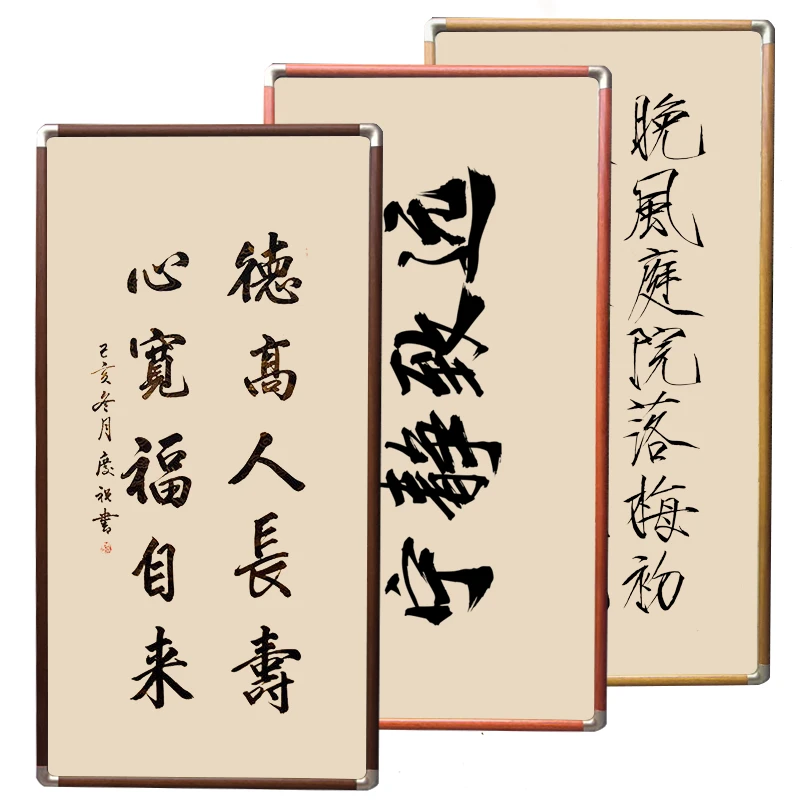 德高人長壽
心寬福自来
己亥冬月書
宁静致远
晚風庭院落梅初